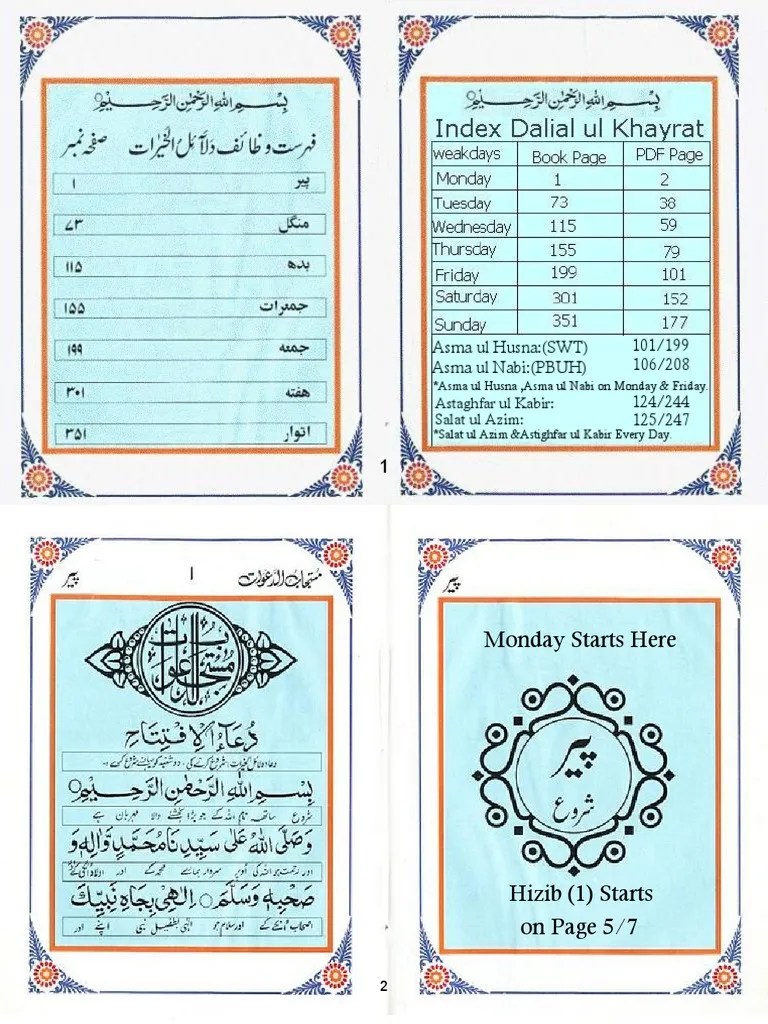 بِسْمِ اللهِ الرَّحْمٰنِ الرَّحِيْمِ
فہرست وظائف دلآئل الخیرات صفحہ نمبر
پیر ۱
منگل ۷۳
بدھ ۱۱۵
جمعرات ۱۵۵
جمعہ ۱۹۹
ہفتہ ۳۰۱
اتوار ۳۵۱
بِسْمِ اللهِ الرَّحْمٰنِ الرَّحِيْمِ
Index Dalial ul Khayrat
weakdays Book Page PDF Page
Monday 1 2
Tuesday 73 38
Wednesday 115 59
Thursday 155 79
Friday 199 101
Saturday 301 152
Sunday 351 177
Asma ul Husna:(SWT) 101/199
Asma ul Nabi:(PBUH) 106/208
*Asma ul Husna ,Asma ul Nabi on Monday & Friday.
Astaghfar ul Kabir: 124/244
Salat ul Azim: 125/247
*Salat ul Azim &Astighfar ul Kabir Every Day.
1
مستجاب الدعوات ۱ پیر
مُسْتَجَابُ الدَّعْوَات
دُعَآءُ الْاِفْتِتَاحِ
بِسْمِ اللهِ الرَّحْمٰنِ الرَّحِيْمِ
شروع ساتھ نام اللہ کے جو بڑا بخشنے والا مہربان ہے
وَصَلَّى اللهُ عَلٰى سَيِّدِنَا مُحَمَّدٍ وَّاٰلِهٖ وَ
اور رحمت ہو اللہ کی اوپر سردار ہمارے محمد کے اور
صَحْبِهٖ وَسَلَّمَ اِلٰهِيْ بِجَاهِ نَبِيِّكَ
اصحاب کے اور سلام ہو الٰہی بطفیل نبی اپنے اور
پیر
Monday Starts Here
پیر
شروع
Hizib (1) Starts
on Page 5/7
2